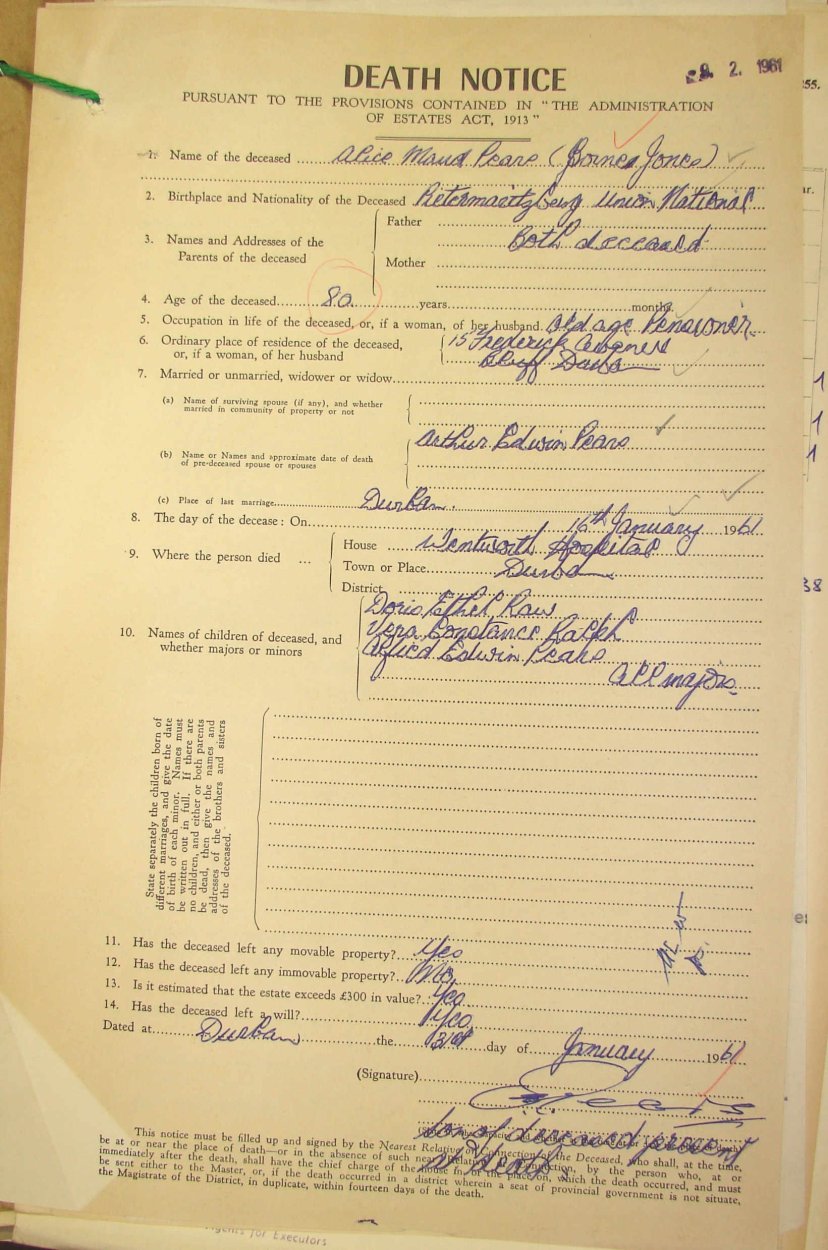 DEATH NOTICE
2. 1961
PURSUANT TO THE PROVISIONS CONTAINED IN "THE ADMINISTRATION
OF ESTATES ACT, 1913"
55.
1. Name of the deceased ...... Alice Maud Pears (Born Jones)
2. Birthplace and Nationality of the Deceased Pietermaritzburg Union National
3. Names and Addresses of the
Parents of the deceased
Father
Both deceased
Mother
4. Age of the deceased 80 years months
5. Occupation in life of the deceased, or, if a woman, of her husband. Old age Pensioner.
6. Ordinary place of residence of the deceased,
or, if a woman, of her husband
15 Frederick
Bluff
7. Married or unmarried, widower or widow
(a) Name of surviving spouse (if any), and whether
married in community of property or not
(b) Name or Names and approximate date of death
of pre-deceased spouse or spouses
Arthur Edwin Pears
(c) Place of last marriage Durban.
8. The day of the decease: On 16th January 1961
9. Where the person died ...
House Wentworth Hospital
Town or Place Durban
District
10. Names of children of deceased, and
whether majors or minors
Doris Ethel Raw
Vera Constance Ralph
Alfred Edwin Pears
all majors.
State separately the children born of
different marriages, and give the date
of birth of each minor. Names must
be written out in full. If there are
no children, and either or both parents
be dead, then give the names and
addresses of the brothers and sisters
of the deceased.
11. Has the deceased left any movable property? Yes
12. Has the deceased left any immovable property? No.
13. Is it estimated that the estate exceeds £300 in value? Yes
14. Has the deceased left a will? Yes
Dated at Durban the 31st day of January 1961
(Signature) Pears
Son of deceased present
at death
This notice must be filled up and signed by the Nearest Relative or Connection of the Deceased, who shall, at the time,
be at or near the place of death—or in the absence of such near Relative or Connection, by the person who, at or
immediately after the death, shall have the chief charge of the house in, or the place on, which the death occurred, and must
be sent either to the Master, or, if the death occurred in a district wherein a seat of provincial government is not situate,
the Magistrate of the District, in duplicate, within fourteen days of the death.
Agents for Executors